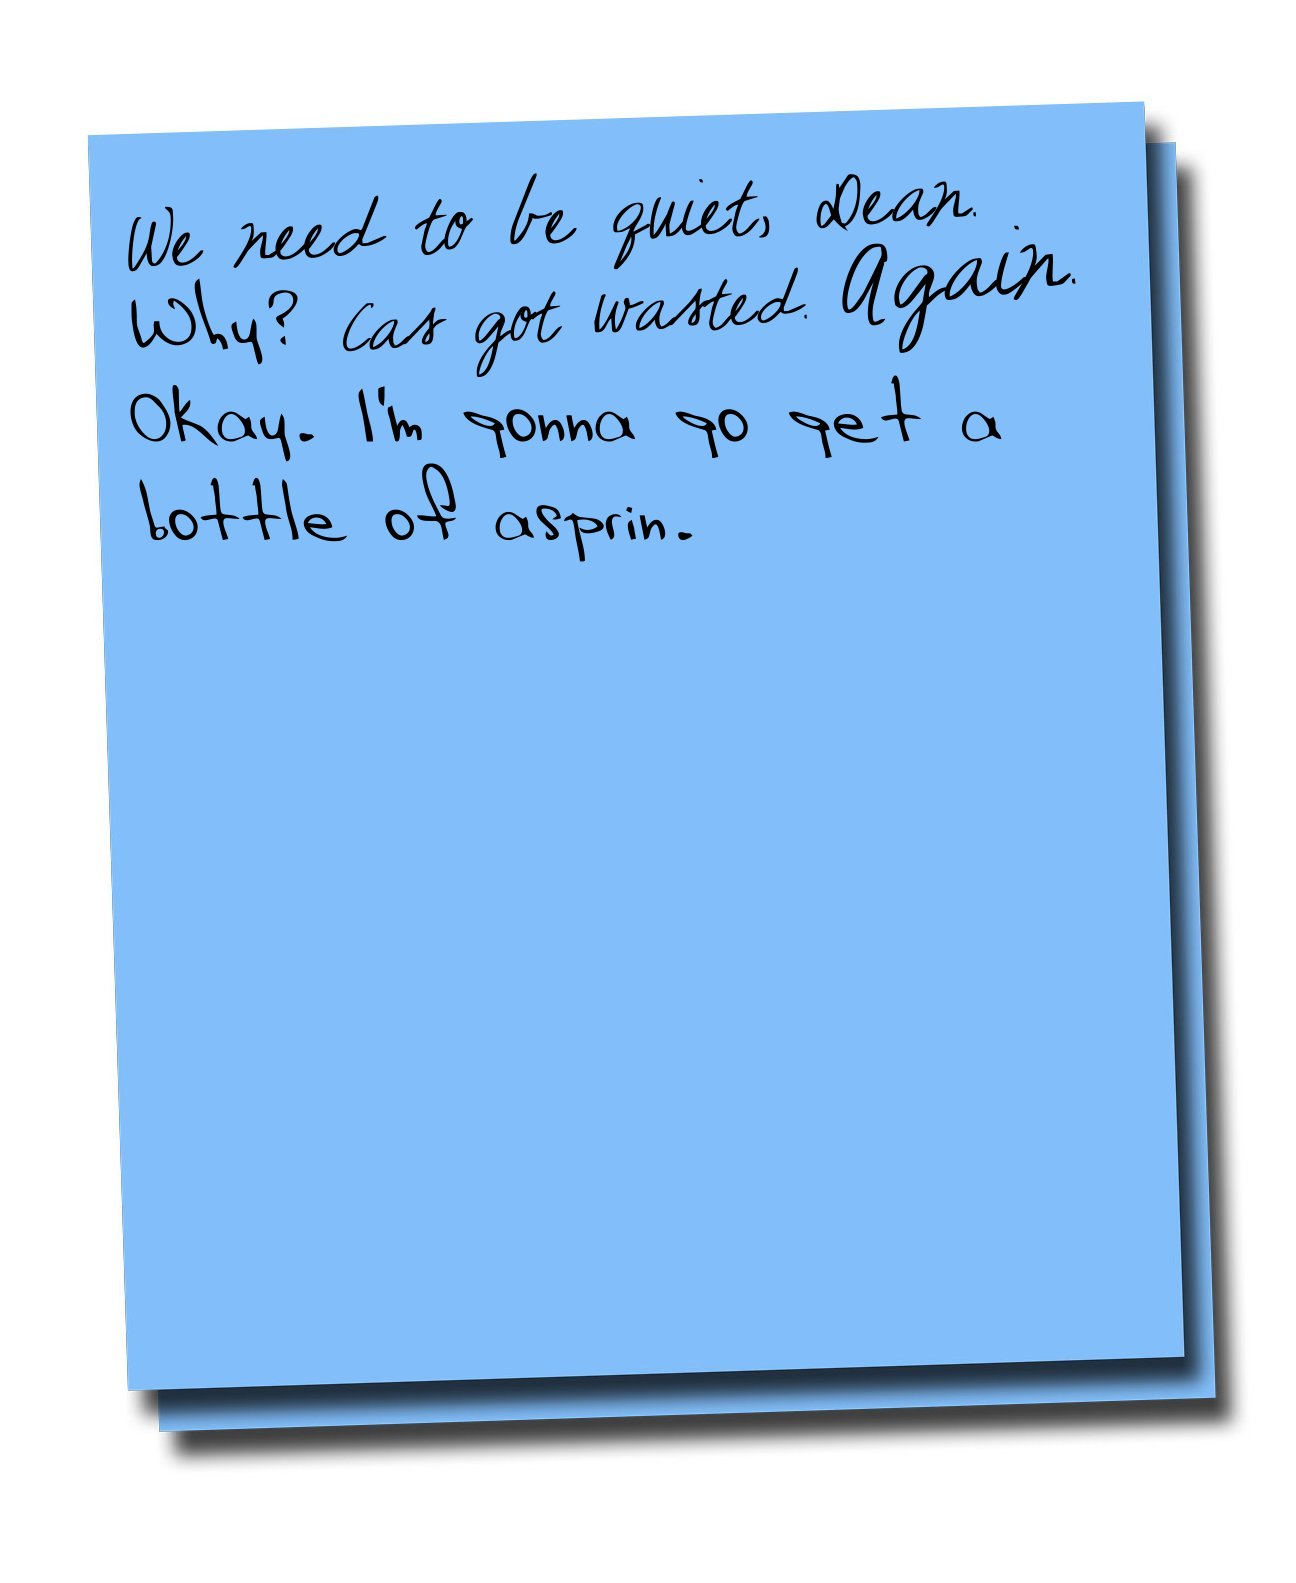 We need to be quiet, Dean.
Why? Cas got wasted. Again.
Okay. I'm gonna go get a
bottle of asprin.